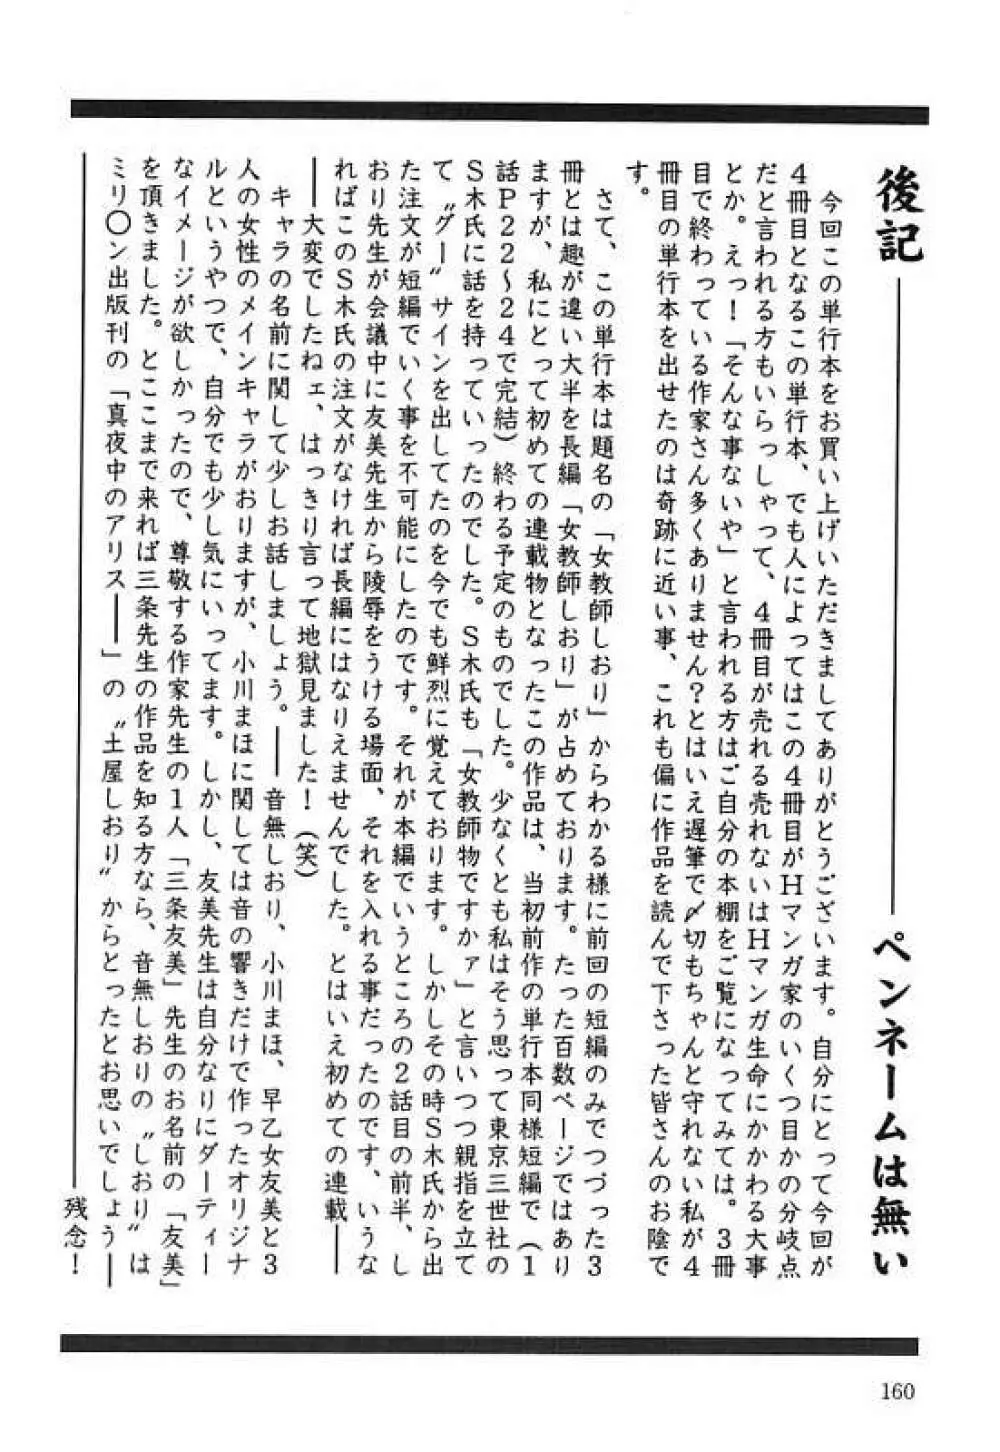 後記――――ペンネームは無い
　今回この単行本をお買い上げいただきましてありがとうございます。自分にとって今回が
4冊目となるこの単行本、でも人によってはこの4冊目がHマンガ家のいくつ目かの分岐点
だと言われる方もいらっしゃって、4冊目が売れる売れないはHマンガ生命にかかわる大事
とか。えっ！「そんな事ないや」と言われる方はご自分の本棚をご覧になってみては。3冊
目で終わっている作家さん多くありません？とはいえ遅筆で〆切もちゃんと守れない私が4
冊目の単行本を出せたのは奇跡に近い事、これも偏に作品を読んで下さった皆さんのお陰で
す。
　さて、この単行本は題名の「女教師しおり」からわかる様に前回の短編のみでつづった3
冊とは趣が違い大半を長編「女教師しおり」が占めております。たった百数ページではあり
ますが、私にとって初めての連載物となったこの作品は、当初前作の単行本同様短編で（1
話P22〜24で完結）終わる予定のものでした。少なくとも私はそう思って東京三世社の
S木氏に話を持っていったのでした。S木氏も「女教師物ですかァ」と言いつつ親指を立て
て〝グー〟サインを出してたのを今でも鮮烈に覚えております。しかしその時S木氏から出
た注文が短編でいく事を不可能にしたのです。それが本編でいうところの2話目の前半、し
おり先生が会議中に友美先生から陵辱をうける場面、それを入れる事だったのです、いうな
ればこのS木氏の注文がなければ長編にはなりえませんでした。とはいえ初めての連載――
――大変でしたねェ、はっきり言って地獄見ました！（笑）
　キャラの名前に関して少しお話しましょう。――音無しおり、小川まほ、早乙女友美と3
人の女性のメインキャラがおりますが、小川まほに関しては音の響きだけで作ったオリジナ
ルというやつで、自分でも少し気にいってます。しかし、友美先生は自分なりにダーティー
なイメージが欲しかったので、尊敬する作家先生の1人「三条友美」先生のお名前の「友美」
を頂きました。とここまで来れば三条先生の作品を知る方なら、音無しおりの〝しおり〟は
ミリ〇ン出版刊の「真夜中のアリス――」の〝土屋しおり〟からとったとお思いでしょう――
――――残念！
160